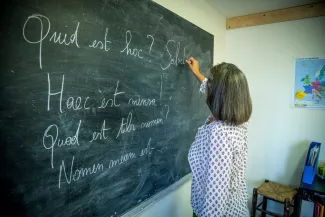 Quid est hoc? Salv
Haec est mensa!
Quod est tibi nomen?
Nomen meum est